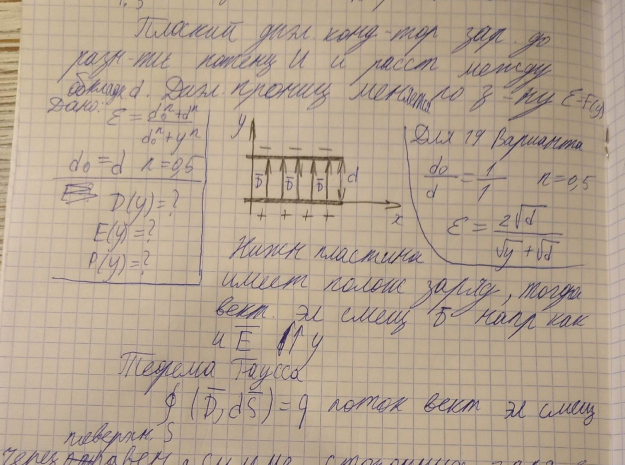 Плоский диэл конд-тор зар. до
разн-ти потенц U и расст между
обклад d. Диэл прониц меняется по з-ну ε=f(y)
Дано: ε = d₀ⁿ+dⁿ / d₀ⁿ+yⁿ
d₀ = d n = 0,5
D(y)=?
E(y)=?
P(y)=?
y
− − −
D̅ D̅ D̅ D̅
d
+ + + +
x
Для 19 варианта
d₀/d = 1/1 n=0,5
ε = 2√d / √y + √d
Нижн пластина
имеет полож заряд, тогда
вект эл смещ D̅ напр как
и E̅ ↑↑ y
Теорема Гаусса
∮ (D̅, dS̅) = q поток вект эл смещ
поверхн. S
через